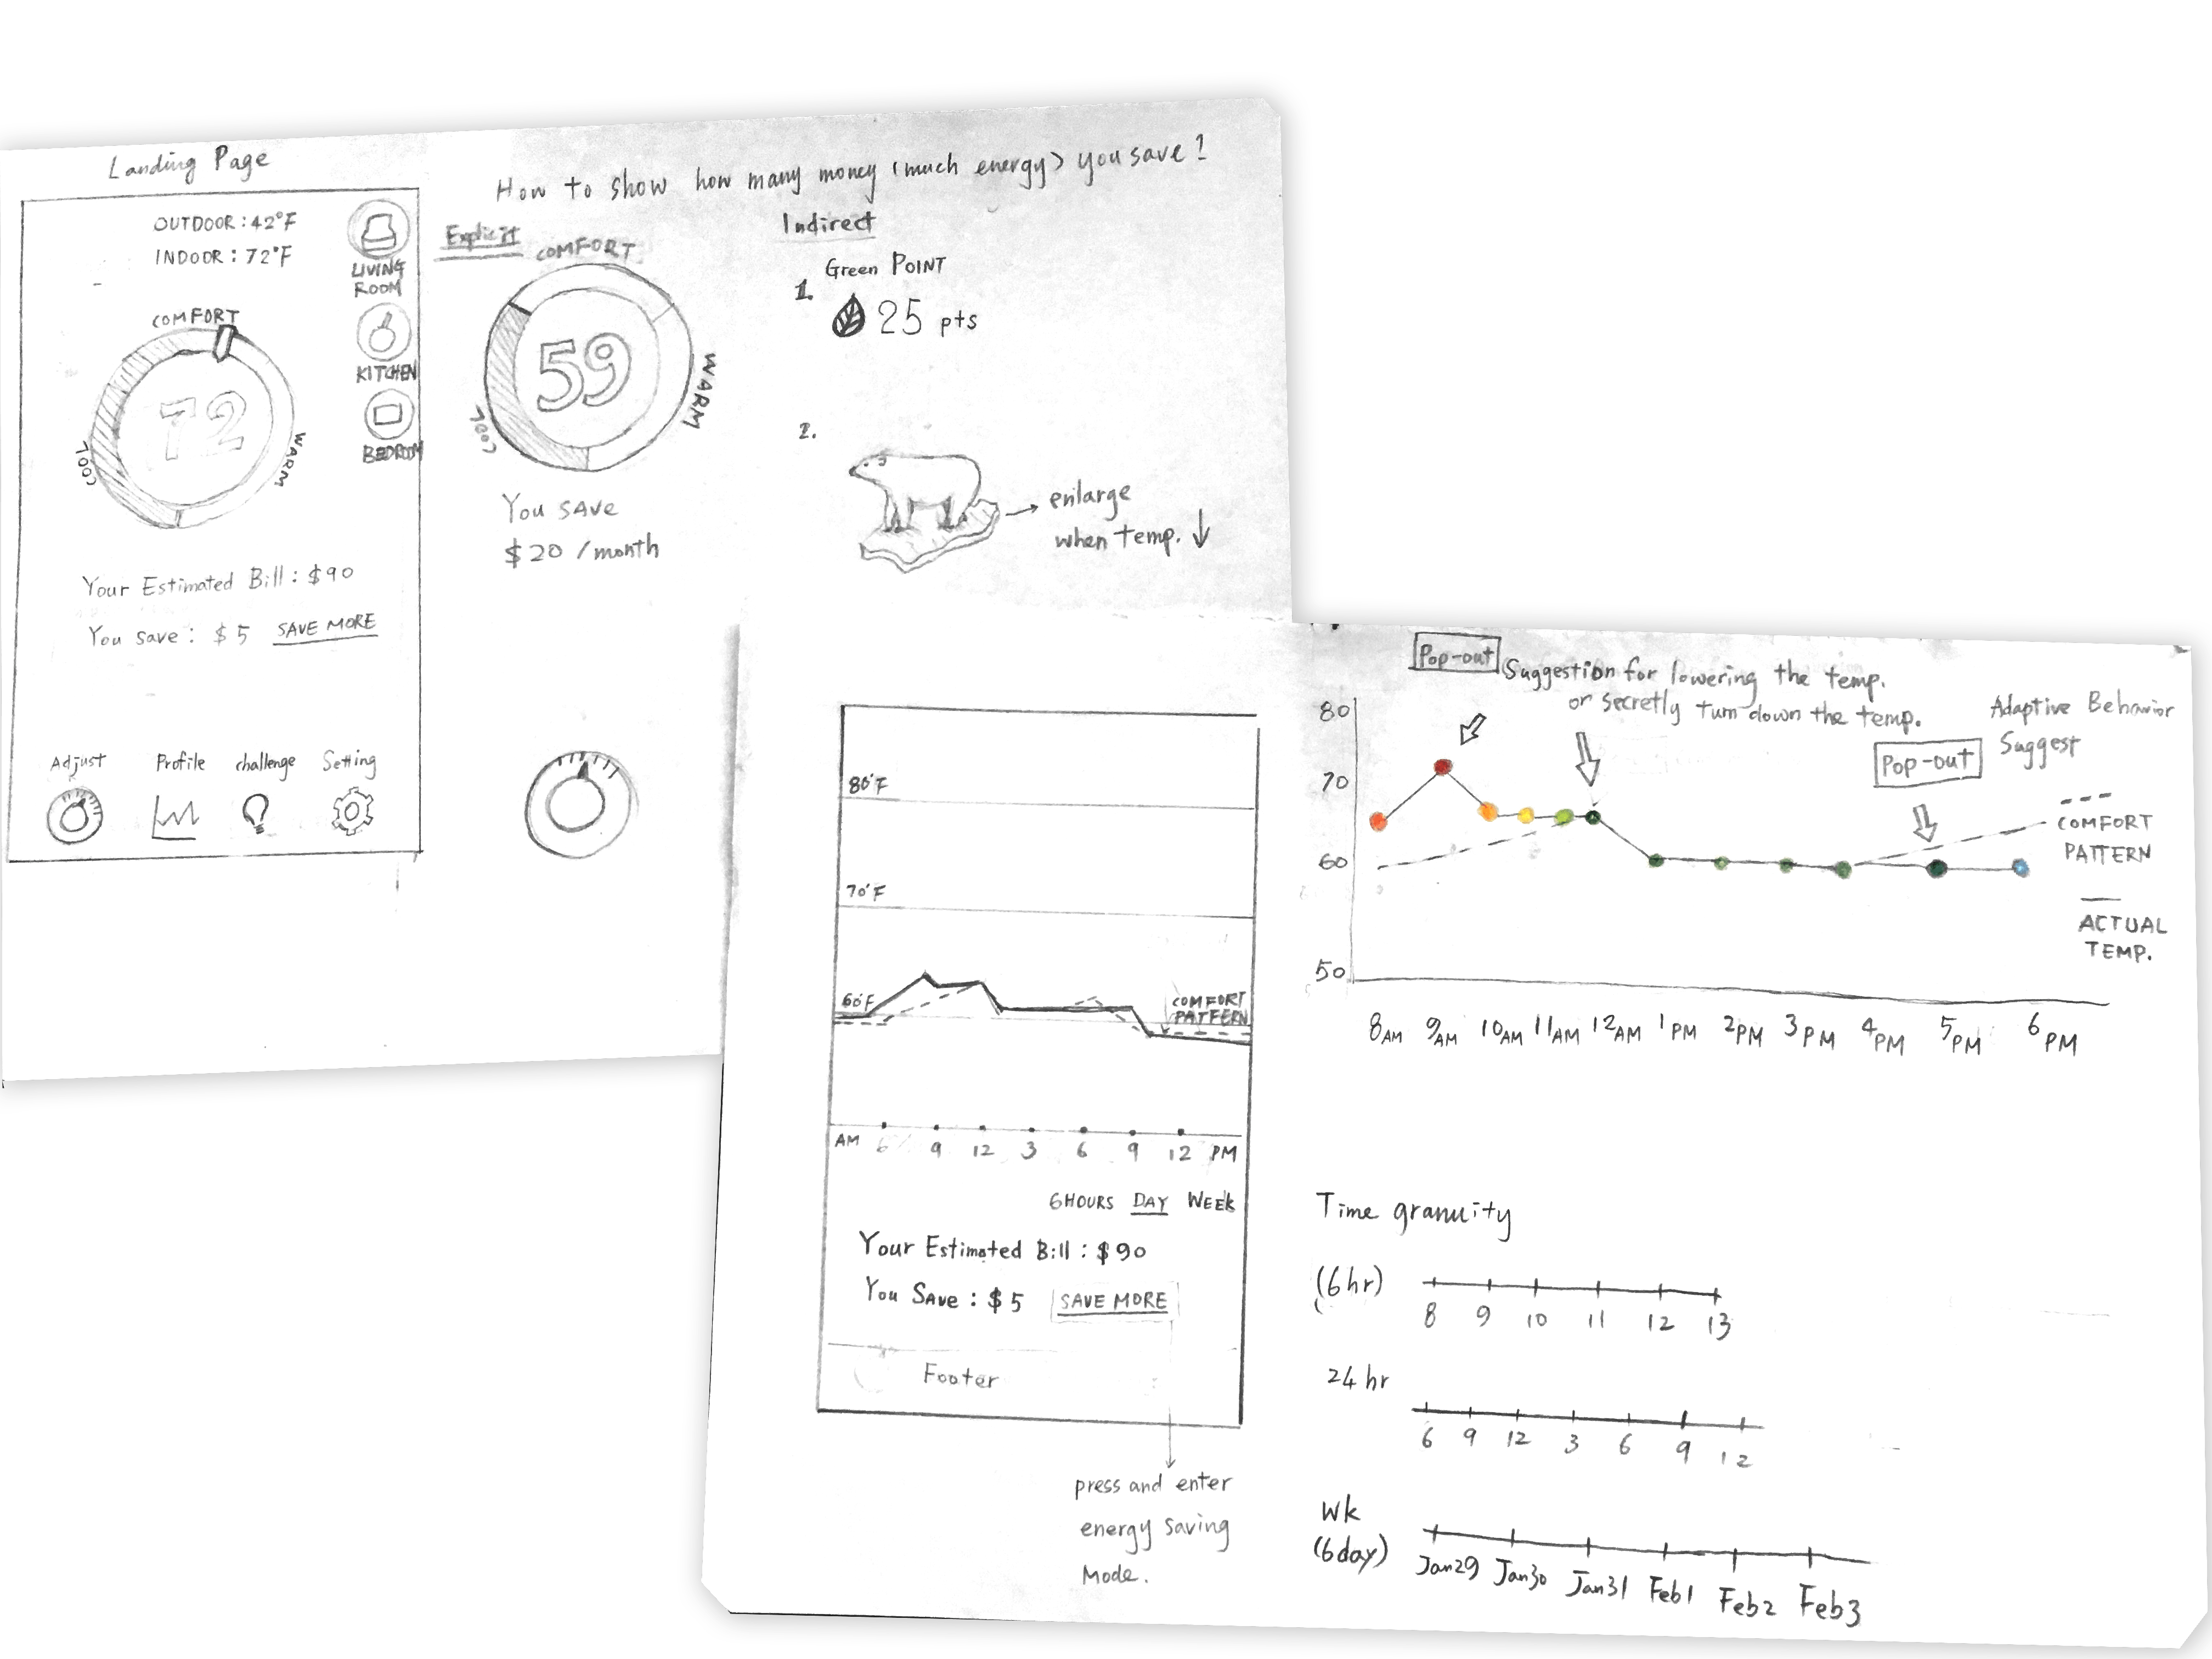 Landing Page
OUTDOOR : 42°F
INDOOR : 72°F
LIVING
ROOM
KITCHEN
BEDROOM
COMFORT
72
COOL
WARM
Your Estimated Bill : $90
You save : $5 SAVE MORE
Adjust Profile challenge Setting
How to show how many money (much energy) you save?
Explicit
COMFORT
59
COOL
WARM
You SAVE
$20 /month
Indirect
Green POINT
1.
25 pts
2.
enlarge
when temp. ↓
80°F
70°F
60°F
COMFORT
PATTERN
AM 6 9 12 3 6 9 12 PM
6HOURS DAY WEEK
Your Estimated Bill : $90
You SAVE : $5 SAVE MORE
Footer
press and enter
energy saving
Mode.
Pop-out Suggestion for lowering the temp.
or secretly turn down the temp.
Adaptive Behavior
Suggest
Pop-out
80
70
60
50
COMFORT
PATTERN
ACTUAL
TEMP.
8AM 9AM 10AM 11AM 12AM 1PM 2PM 3PM 4PM 5PM 6PM
Time granuity
(6hr)
8 9 10 11 12 13
24hr
6 9 12 3 6 9 12
Wk
(6day)
Jan29 Jan30 Jan31 Feb1 Feb2 Feb3